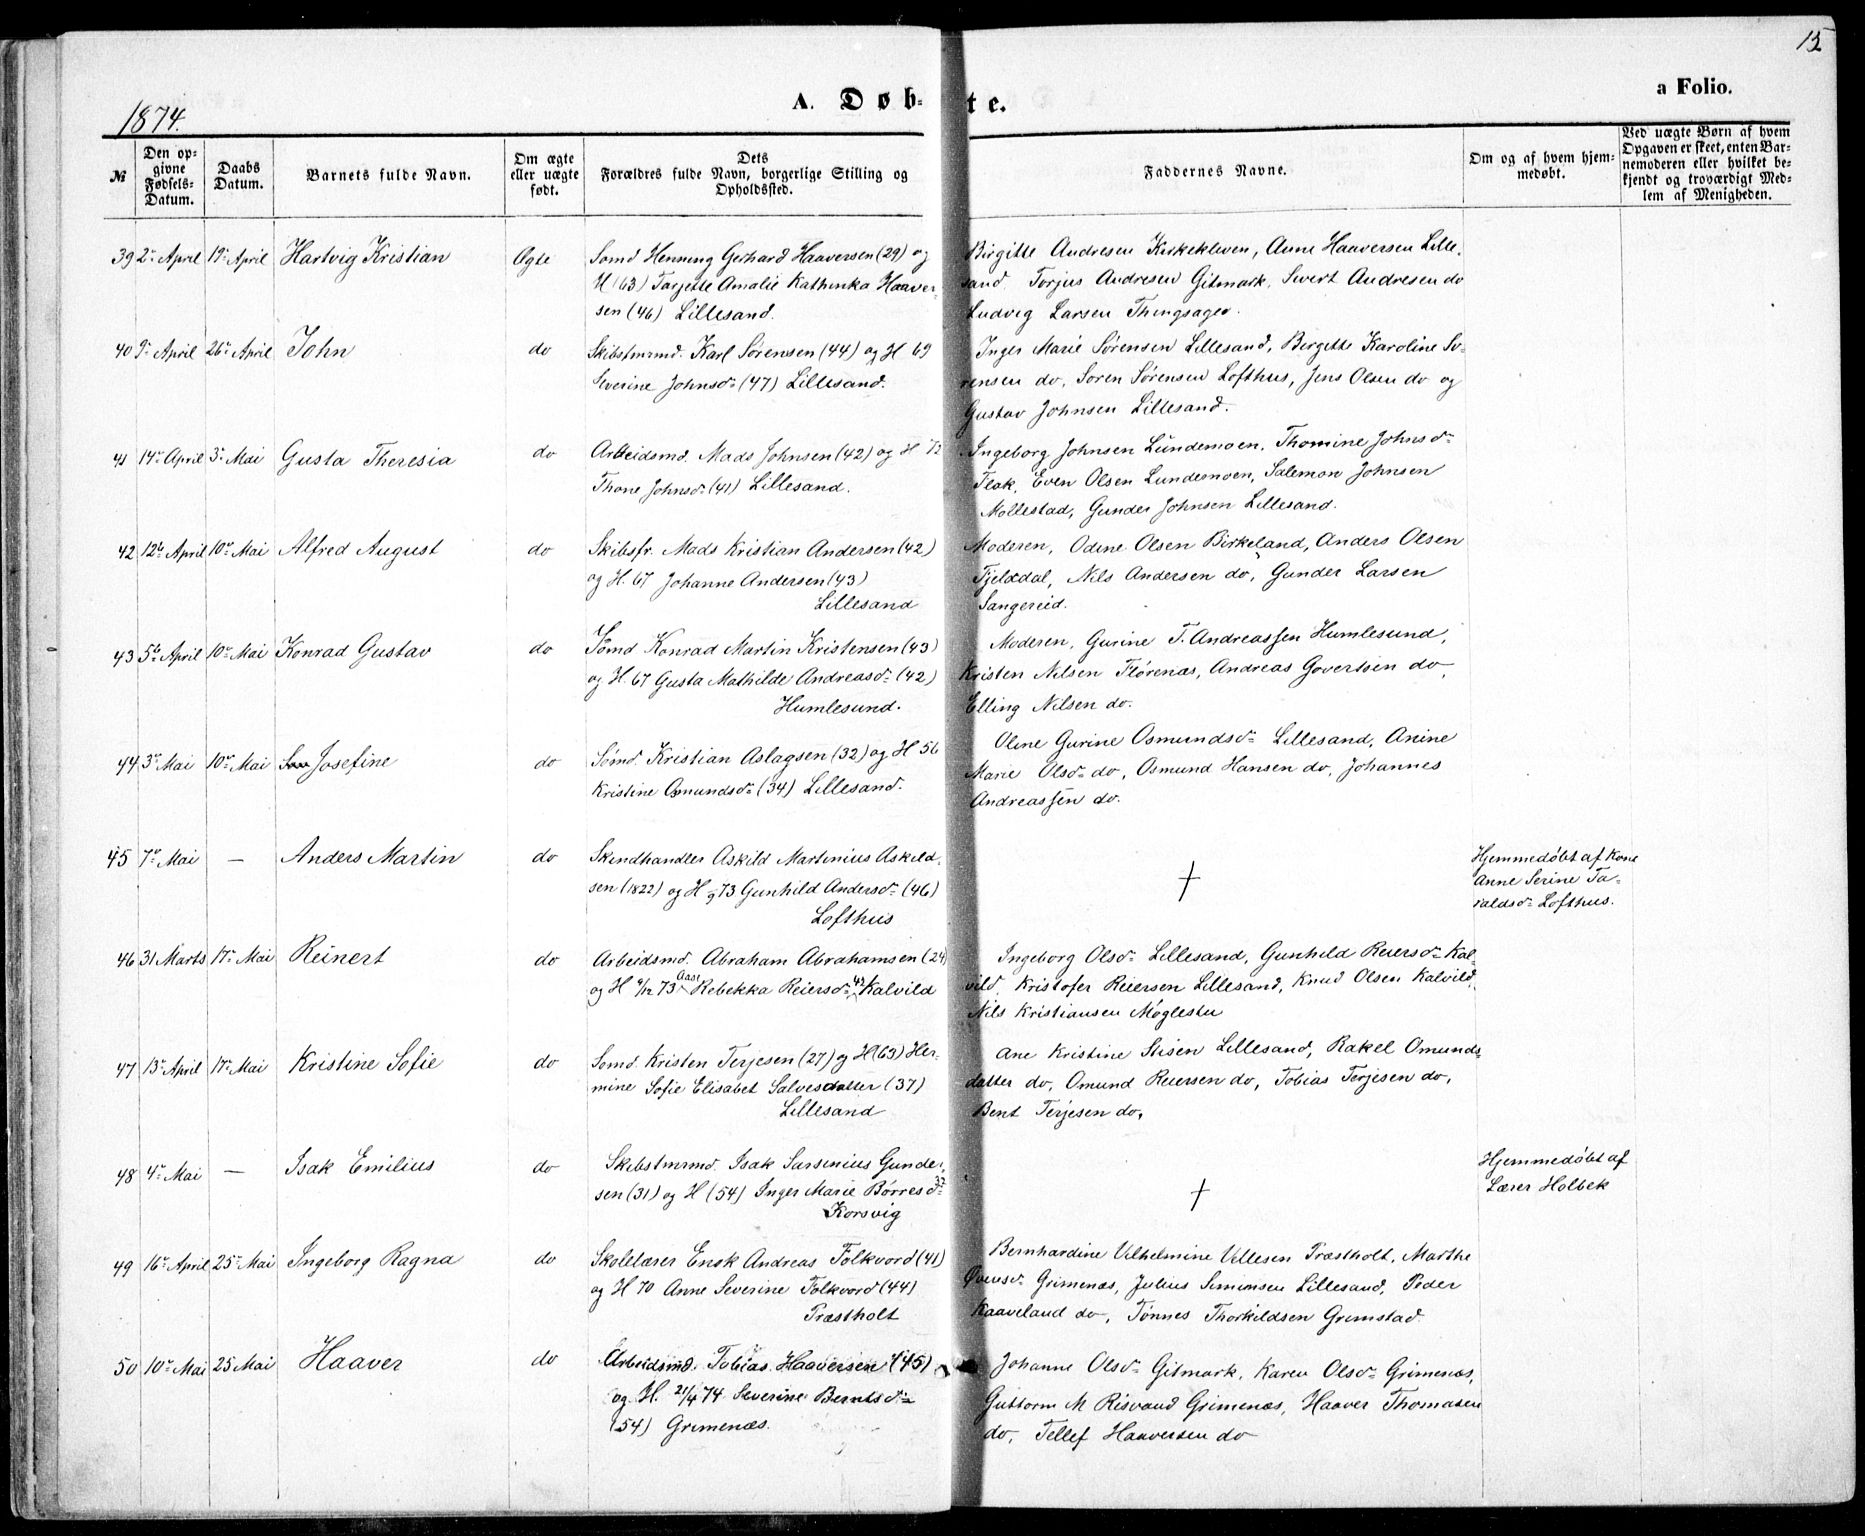 15
1874.
A. Døb-
te.
a Folio.
№
Den op-
givne
Fødsels-
Datum.
Daabs
Datum.
Barnets fulde Navn.
Om ægte
eller uægte
født.
Dets
Forældres fulde Navn, borgerlige Stilling og
Opholdssted.
Faddernes Navne.
Om og af hvem hjem-
medøbt.
Ved uægte Børn af hvem
Opgaven er skeet, enten Bar-
nemoderen eller hvilket be-
kjendt og troværdigt Med-
lem af Menigheden.
39 2den April 19de April Hartvig Kristian Ægte
Sømd Henning Gerhard Haaversen (29) og
H (63) Tarjette Amalie Kathinka Haaver-
sen (46) Lillesand.
Birgitte Andresen Kirkekleven, Anne Haaversen Lille-
sand. Torjus Andresen Gitmark, Sivert Andresen do
Ludvig Larsen Thingsager.
40 9de April 26de April John do
Skibstmrmd. Karl Sørensen (44) og H 69
Severine Johnsdr (47) Lillesand.
Inger Marie Sørensen Lillesand, Birgitte Karoline Sø-
rensen do, Søren Sørensen Lofthus, Jens Olsen do og
Gustav Johnsen Lillesand.
41 14de April 3die Mai Gusta Theresia do
Arbeidsmd. Mads Johnsen (42) og H 72
Thone Johnsdr (41) Lillesand.
Ingeborg Johnsen Lundemoen, Thomine Johnsdr
Flak, Even Olsen Lundemoen, Salemon Johnsen
Mollestad, Gunder Johnsen Lillesand.
42 12te April 10de Mai Alfred August do
Skibsfr. Mads Kristian Andersen (42)
og H. 67 Johanne Andersen (43)
Lillesand
Moderen, Odine Olsen Birkeland, Anders Olsen
Fjeldal, Nils Andersen do, Gunder Larsen
Sangereid.
43 5te April 10de Mai Konrad Gustav do
Sømd Konrad Martin Kristensen (43)
og H. 67 Gusta Mathilde Andreasdr (42)
Humlesund.
Moderen, Gurine T. Andreassen Humlesund,
Kristen Nilsen Flørenæs, Andreas Govertsen do,
Elling Nilsen do.
44 3die Mai 10de Mai Josefine do
Sømd. Kristian Aslagsen (32) og H 56
Kristine Omundsdr (34) Lillesand.
Oline Gurine Osmundsdr Lillesand, Anine
Marie Olsdr do, Osmund Hansen do, Johannes
Andreassen do.
45 7de Mai — Anders Martin do
Skindhandler Askild Martinius Askild-
sen (1822) og H 73 Gunhild Andersdr (46)
Lofthus
†
Hjemmedøbt af Kone
Anne Serine Ta-
raldsdr Lofthus.
46 31 Marts 17de Mai Reinert do
Arbeidsmd. Abraham Abrahamsen (24)
og H 9/12 73 Aase Rebekka Reiersdr 42 Kalvild
Ingeborg Olsdr Lillesand, Gunhild Reiersdr Kal-
vild, Kristofer Reiersen Lillesand, Knud Olsen Kalvild,
Nils Kristiansen Møglestu
47 13de April 17de Mai Kristine Sofie do
Sømd. Kristen Terjesen (27) og H (63) Her-
mine Sofie Elisabet Salvesdatter (37)
Lillesand
Ane Kristine Stisen Lillesand, Rakel Omunds-
datter do, Omund Reiersen do, Tobias Terjesen do,
Bent Terjesen do,
48 4de Mai — Isak Emilius do
Skibstmrmd. Isak Sarsinius Gunder-
sen (31) og H (54) Inger Marie Børresdr 32
Korsvig
†
Hjemmedøbt af
Lærer Holbek
49 16de April 25de Mai Ingeborg Ragna do
Skolelærer Enok Andreas Folkvord (41)
og H 70 Anne Severine Folkvord (44)
Præstholt
Bernhardine Vilhelmine Vellesen Præstholt, Marthe
Øvensdr Grimenæs, Julius Simonsen Lillesand, Peder
Kaaveland do, Tønnes Thorkildsen Grimstad.
50 10de Mai 25 Mai Haaver do
Arbeidsmd. Tobias Haaversen (45)
og H. 21/4 74 Severine Berntsdr
(54) Grimenæs.
Johanne Olsdr Gitmark, Karen Olsdr Grimenæs,
Guttorm M Risvand Grimenæs, Haaver Thomasen
do, Tellef Haaversen do